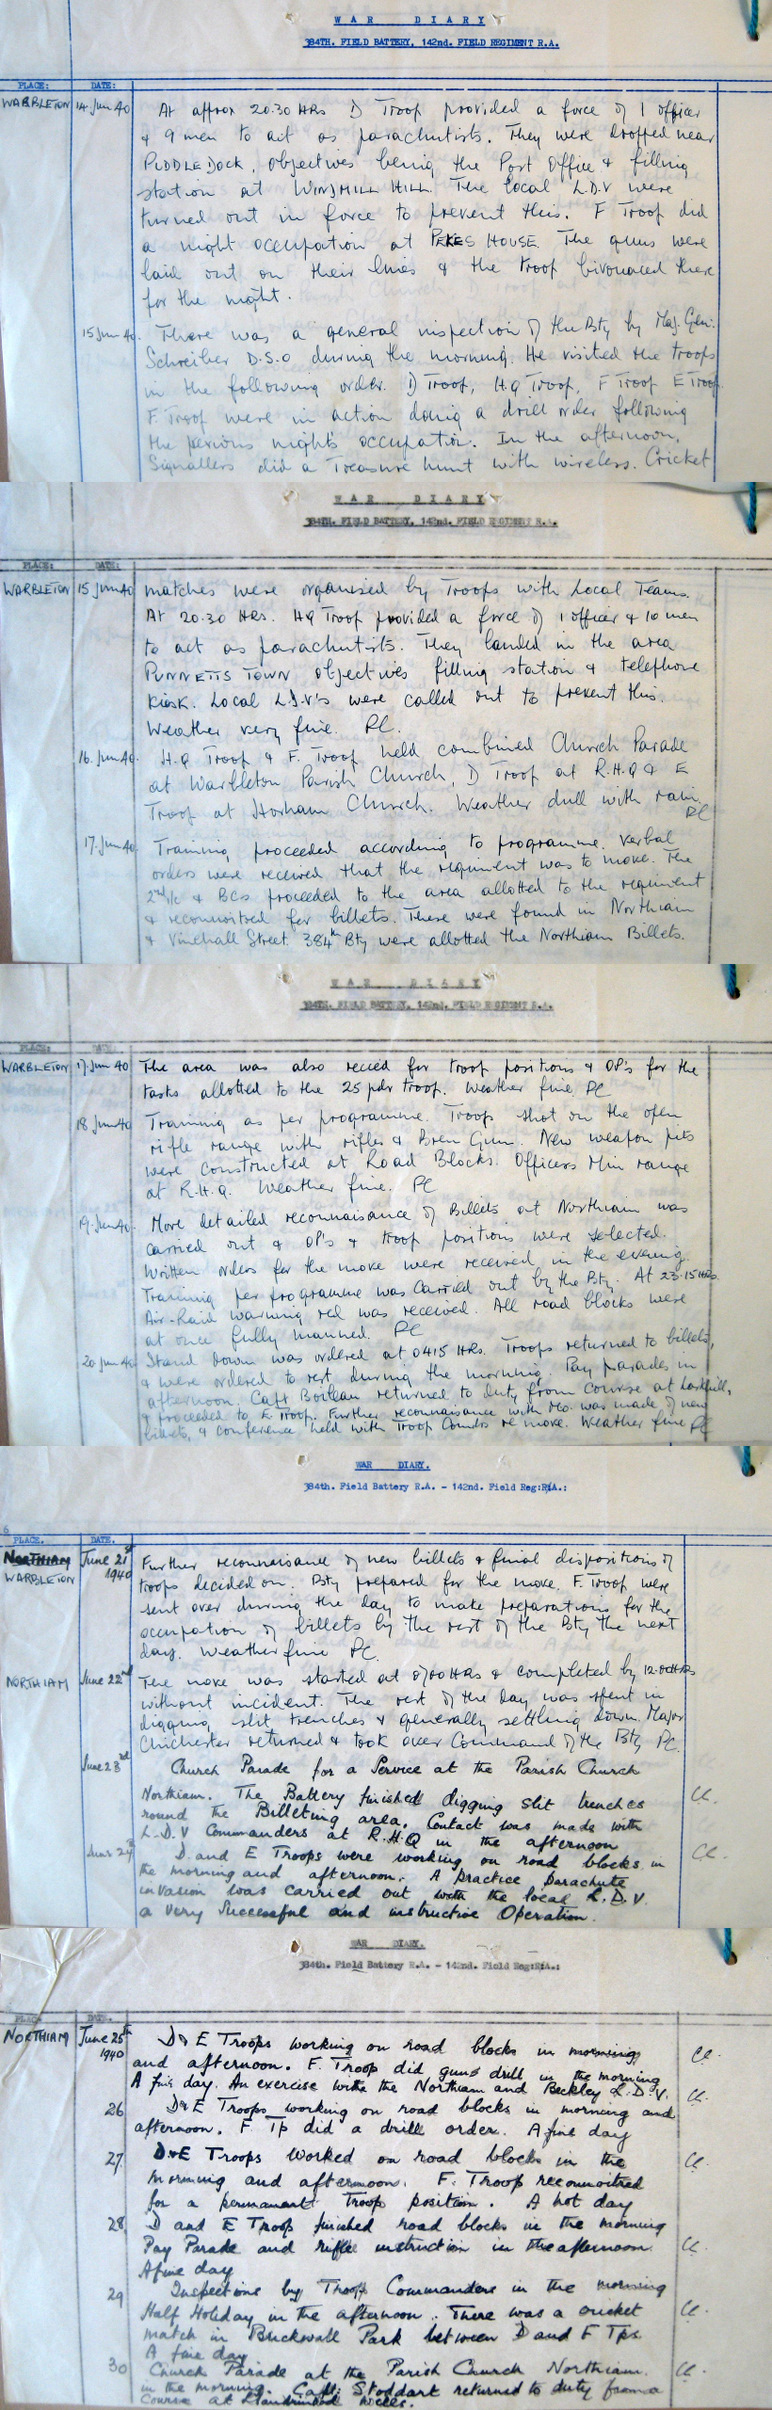 WAR DIARY
384TH. FIELD BATTERY, 142nd. FIELD REGIMENT R.A.
PLACE: DATE:
WARBLETON 14 Jun 40 At approx 20.30 HRS D Troop provided a force of 1 officer
& 9 men to act as parachutists. They were dropped near
PUDDLEDOCK, objectives being the Post Office & filling
station at WINDMILL HILL. The local L.D.V were
turned out in force to prevent this. F Troop did
a night occupation at PEKES HOUSE. The guns were
laid out on their lines & the troop bivouaced there
for the night.
15 Jun 40. There was a general inspection of the Bty by Maj. Gen.
Schreiber D.S.O during the morning. He visited the troops
in the following order. D Troop, H.Q Troop, F Troop E Troop.
F. Troop were in action doing a drill order following
the previous night's occupation. In the afternoon,
Signallers did a Treasure hunt with wireless. Cricket
WAR DIARY
384TH. FIELD BATTERY, 142nd. FIELD REGIMENT R.A.
PLACE: DATE:
WARBLETON 15 Jun 40 matches were organised by Troops with Local Teams.
At 20.30 HRS. HQ Troop provided a force of 1 officer & 10 men
to act as parachutists. They landed in the area
PUNNETTS TOWN objectives filling station & telephone
kiosk. Local L.D.V's were called out to prevent this.
Weather very fine. PC.
16. Jun 40. H.Q Troop & F. Troop held combined Church Parade
at Warbleton Parish Church, D Troop at R.H.Q & E
Troop at Horham Church. Weather dull with rain.
PC
17. Jun 40 Training proceeded according to programme. Verbal
orders were received that the regiment was to move. The
2nd i/c & BCs proceeded to the area allotted to the regiment
& reconnoitred for billets. These were found in Northiam
& Vinehall Street. 384th Bty were allotted the Northiam Billets.
WAR DIARY
384TH. FIELD BATTERY, 142nd. FIELD REGIMENT R.A.
PLACE: DATE:
WARBLETON 17. Jun 40 The area was also recced for troop positions & OP's for the
tasks allotted to the 25 pdr troop. Weather fine PC
18 Jun 40 Training as per programme. Troops shot on the open
rifle range with rifles & Bren Gun. New weapon pits
were constructed at Road Blocks. Officers Min range
at R.H.Q. Weather fine. PC
19. Jun 40. More detailed reconnaisance of Billets at Northiam was
carried out & OP's & troop positions were selected.
Written orders for the move were received in the evening.
Training per programme was Carried out by the Bty. At 23.15 HRS.
Air-Raid warning red was received. All road blocks were
at once fully manned. PC
20 Jun 40 Stand Down was ordered at 0415 HRS. Troops returned to billets,
& were ordered to rest during the morning. Pay parades in
afternoon. Capt Boileau returned to duty from course at Larkhill,
& proceeded to E Troop. Further reconnaisance with was made of new
billets, & conference held with Troop Comdrs re move. Weather fine PC
WAR DIARY.
384th. Field Battery R.A. - 142nd. Field Reg:R.A.:
6
PLACE. DATE.
NORTHIAM June 21st Further reconnaisance of new billets & final dispositions of
WARBLETON 1940 troops decided on. Bty prepared for the move. F. Troop were
sent over during the day to make preparations for the
occupation of billets by the rest of the Bty the next
day. Weather fine PC.
NORTHIAM June 22nd The move was started at 0700 HRS & completed by 12.00 HRS
without incident. The rest of the day was spent in
digging slit trenches & generally settling down. Major
Chichester returned & took over Command of the Bty PC.
June 23rd Church Parade for a Service at the Parish Church
Northiam. The Battery finished digging slit trenches
round the Billeting area. Contact was made with
L.D.V Commanders at R.H.Q in the afternoon
June 24th D and E Troops were working on road blocks in
the morning and afternoon. A practice parachute
invasion was carried out with the local L.D.V.
a very Successful and instructive Operation.
WAR DIARY.
384th. Field Battery R.A. - 142nd. Field Reg:R.A.:
PLACE. DATE.
NORTHIAM June 25th D & E Troops working on road blocks in morning
1940 and afternoon. F. Troop did guns drill in the morning
A fine day. An exercise with the Northiam and Beckley L.D.V.
26 D & E Troops working on road blocks in morning and
afternoon. F. Tp did a drill order. A fine day
27 D & E Troops Worked on road blocks in the
morning and afternoon. F. Troop reconnoitred
for a permanant Troop position. A hot day
28 D and E Troop finished road blocks in the morning
Pay Parade and rifle instruction in the afternoon.
A fine day
29 Inspections by Troop Commanders in the morning
Half Holiday in the afternoon. There was a cricket
match in Brickwall Park between D and F Tps.
A fine day
30 Church Parade at the Parish Church Northiam.
in the morning. Capt. Stoddart returned to duty from a
Course at Llandrindod Wells.